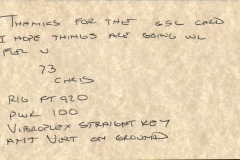 THANKS FOR THE QSL CARD
I HOPE THINGS ARE GOING WL
FER U
73
CHRIS
RIG FT 920
PWR 100
VIBROPLEX STRAIGHT KEY
ANT VERT ON GROUND